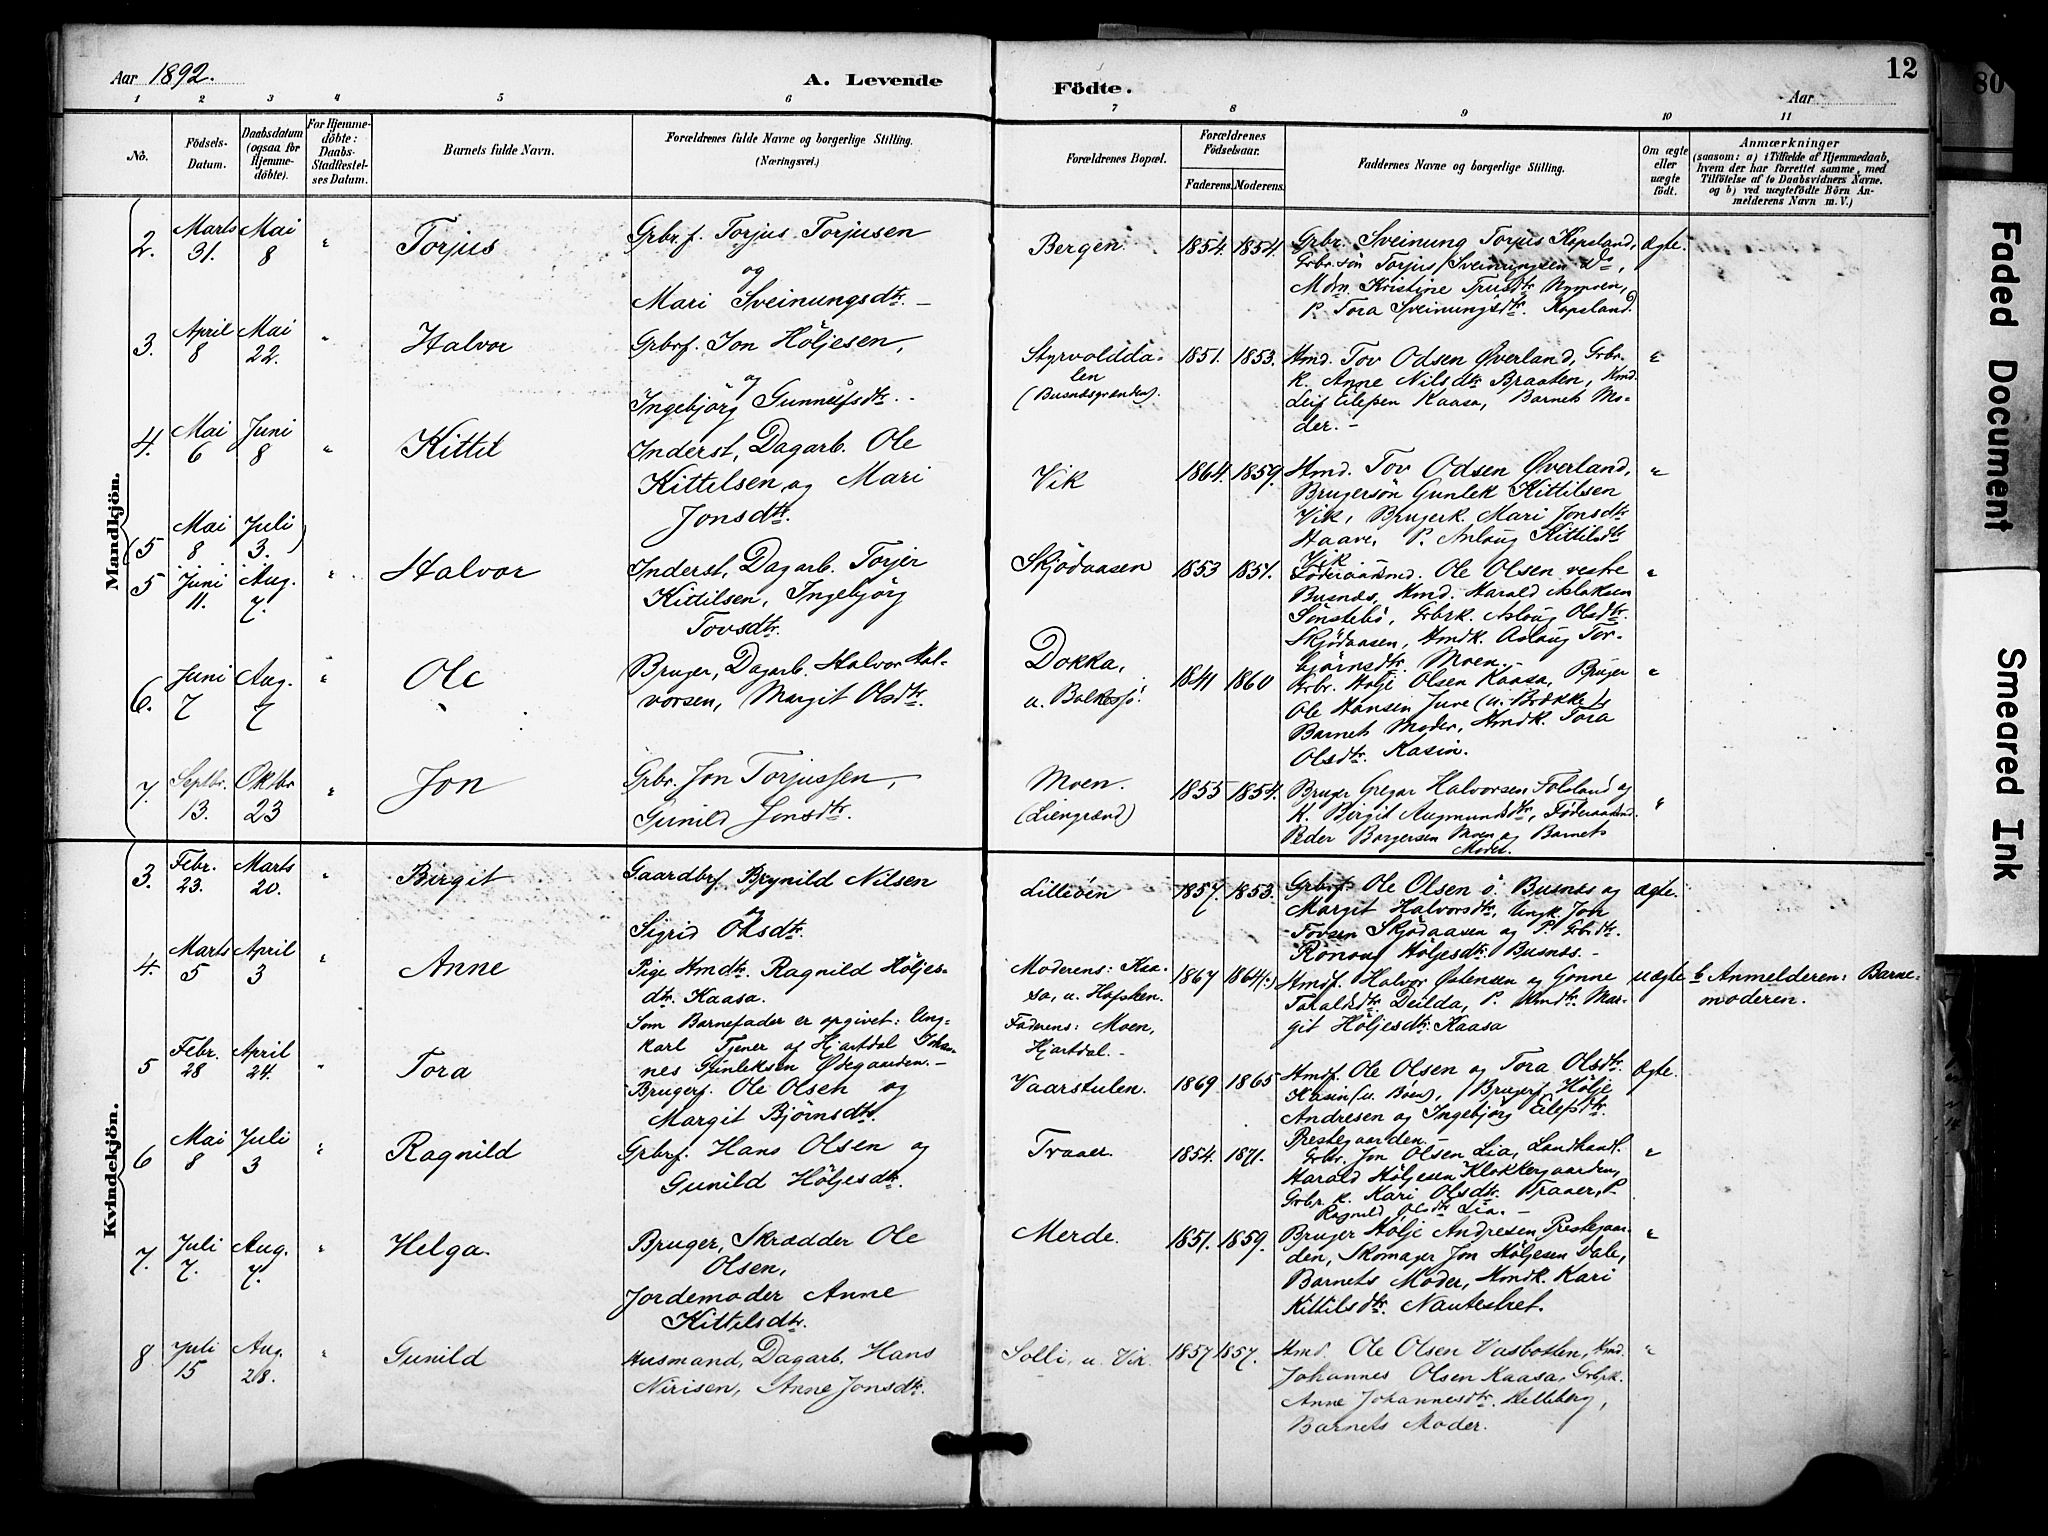 Aar 1892.
A. Levende
Födte.
Aar
12
80
1 2 3 4 5 6 7 8 9 10 11
No.
Födsels-
Datum.
Daabsdatum
(ogsaa for
Hjemme-
döbte).
For Hjemme-
döbte:
Daabs-
Stadfæstel-
ses Datum.
Barnets fulde Navn.
Forældrenes fulde Navne og borgerlige Stilling.
(Næringsvei.)
Forældrenes Bopæl.
Forældrenes
Födselsaar.
Faderens. Moderens.
Faddernes Navne og borgerlige Stilling.
Om ægte
eller
uægte
födt.
Anmærkninger
(saasom: a) i Tilfælde af Hjemmedaab,
hvem der har forrettet samme, med
Tilföielse af to Daabsvidners Navne,
og b) ved uægtefödte Börn An-
melderens Navn m. V.)
Mandkjön.
2. Marts 31. Mai 8 " Torjus
Grbrf. Torjus Torjusen
og
Mari Sveinungsdtr. -
Bergen. 1854. 1854.
Grbr. Sveinung Torjus Kopsland,
Grbr.sön Torjus Sveinungsen Do,
Mdm. Kristine Nymoen,
P. Tora Sveinungsdtr. Kopsland.
Ægte.
3. April 8 Mai 22. " Halvor
Grbrf. Jon Höljesen,
og
Ingebjörg Gunnulfsdtr. -
Styrvoldda-
len
(Busnæsgrænden).
1851. 1853.
Hmd. Tov Odsen Øverland, Grbr.
k. Anne Nilsdtr. Braaten, Hmd.
Leif Eilefsen Kaasa, Barnets Mo-
der. -
"
4. Mai 6 Juni 8 " Kittil
Inderst, Dagarb. Ole
Kittelsen og Mari
Jonsdtr.
Vik 1864. 1859.
Hmd. Tov Odsen Øverland,
Brugersön Gunlek Kittilsen
Vik, Brugerk. Mari Jonsdtr.
Haave, P. Aslaug Kittilsdtr.
Vik
"
(5 Mai 8 Juli 3.)
5 Juni 11. Aug. 7. " Halvor
Inderst, Dagarb. Torjer
Kittilsen, Ingebjörg
Tovsdtr.
Skjödaasen 1853 1857.
Föderaadsmd. Ole Olsen vestre
Busnæs, Hmd. Harald Aslaksen
Sönstebö, Grbrk. Aslaug Olsdtr.
Skjödaasen, Hmdk. Aslaug Tor-
björnsdtr. Moen.
"
6. Juni 7 Aug. 7 " Ole
Bruger, Dagarb. Halvor Hal-
vorsen, Margit Olsdtr.
Dokka,
u. Bolkesjö.
1841 1860
Grbr. Hölje Olsen Kaasa, Bruger
Ole Hansen Juve (u. Bække),
Barnets Moder, Hmdk. Tora
Olsdtr. Kasin.
"
7. Septbr. 13. Oktbr 23 " Jon
Grbr. Jon Torjussen,
Gunild Jonsdtr.
Moen.
(Liengrænd)
1855 1854.
Bruger Gregar Halvorsen Folsland og
K. Birgit Augmundsdtr, Föderaadsmd.
Peder Borgersen Moen og Barnets
Moder.
"
Kvindekjön.
3. Febr. 23. Marts 20. " Birgit
Gaardbrf. Brynild Nilsen
og
Sigrid Olsdtr.
Lilleöen 1857. 1853.
Grbrf. Ole Olsen ö. Busnæs og
Margit Halvorsdtr, Ungk. Jon
Tovsen Skjödaasen og P. Grbrdtr.
Rönoug Höljesdtr. Busnæs. -
Ægte.
4. Marts 5 April 3 " Anne
Pige Hmdtr. Ragnild Höljes-
dtr. Kaasa.
Som Barnefader er opgivet: Ung-
karl Tjener af Hjartdal Johan-
nes Gunleksen Ødegaarden. -
Moderens: Kaa-
sa, u. Hofsken.
Faderens: Moen,
Hjartdal. -
1867 1864(?)
Hmdf. Halvor Østensen og Gonne
Taraldsdtr. Deilda, P. Hmdtr. Mar-
git Höljesdtr. Kaasa
uægte
b Anmelderen: Barne-
moderen.
5 Febr. 28 April 24. " Tora
Brugerf. Ole Olsen og
Margit Björnsdtr.
Vaarstulen. 1869 1865
Hmdf. Ole Olsen og Tora Olsdtr.
Kasin (u. Böen), Brugerf. Hölje
Andresen og Ingebjörg Eilefsdtr.
Prestegaarden. -
Ægte.
6 Mai 8 Juli 3 " Ragnild
Grbrf. Hans Olsen og
Gunild Höljesdtr.
Traaer. 1854. 1871.
Grbr. Jon Olsen Lia, Landhandl.
Harald Höljesen Klokkergaarden,
Grbr. k. Kari Olsdtr. Traaer, P.
Ragnild Olsdtr Lia. -
"
7. Juli 7. Aug. 7. " Helga.
Bruger, Skrædder Ole
Olsen,
Jordemoder Anne
Kittelsdtr.
Merde. 1851. 1859.
Bruger Hölje Andresen Prestegaar-
den, Skomager Jon Höljesen Dale,
Barnets Moder, Hmdk. Kari
Kittilsdtr. Nautestret.
"
8 Juli 15 Aug. 28. " Gunild
Husmand, Dagarb. Hans
Nirisen, Anne Jonsdtr.
Solli, u. Vik. 1857 1857.
Hmd. Ole Olsen Vasbotten, Hmd.
Johannes Olsen Kaasa, Grbrk.
Anne Johannesdtr. Helleberg,
Barnets Moder.
"
Faded Document
Smeared Ink